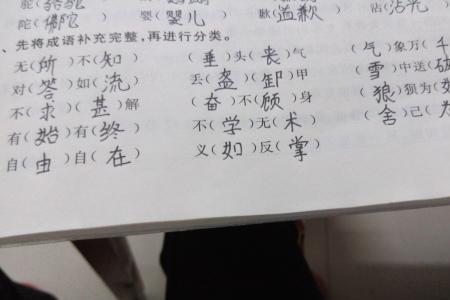 陀(佛陀) 婴(婴儿) 歉(道歉) 沾(沾光)
、先将成语补充完整,再进行分类。
无(所)不(知) (垂)头(丧)气 (气)象万(千
对(答)如(流) 丢(盔)(卸)甲 (雪)中送(
不(求)(甚)解 (奋)不(顾)身 (狼)狈为(
有(始)有(终) 不(学)无(术) (舍)己(为
自(由)自(在) 义(如)反(掌)